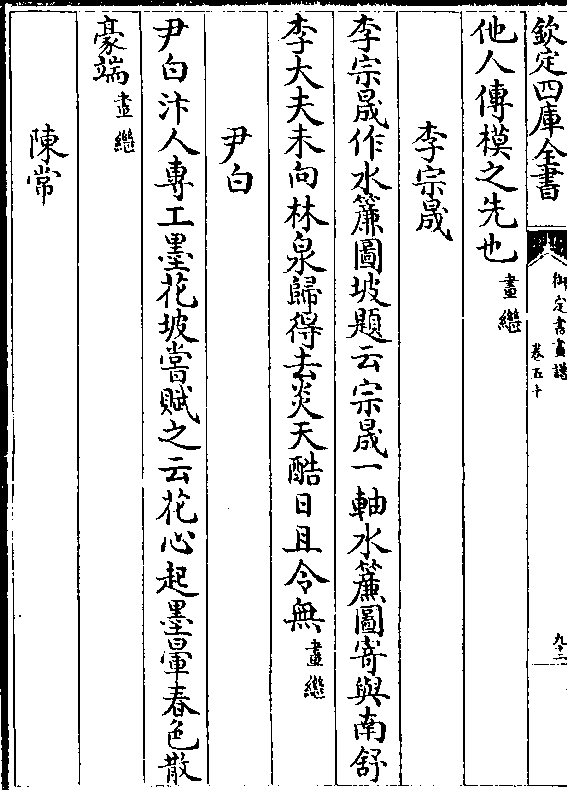 欽定四庫全書
御定書畫譜
卷五十
九十二
他人傳模之先也畫繼
李宗晟
李宗晟作水簾圖坡題云宗晟一軸水簾圖寄與南舒
李大夫未向林泉歸得去炎天酷日且令無畫繼
尹白
尹白汴人專工墨花坡嘗賦之云花心起墨暈春色散
豪端畫繼
陳常